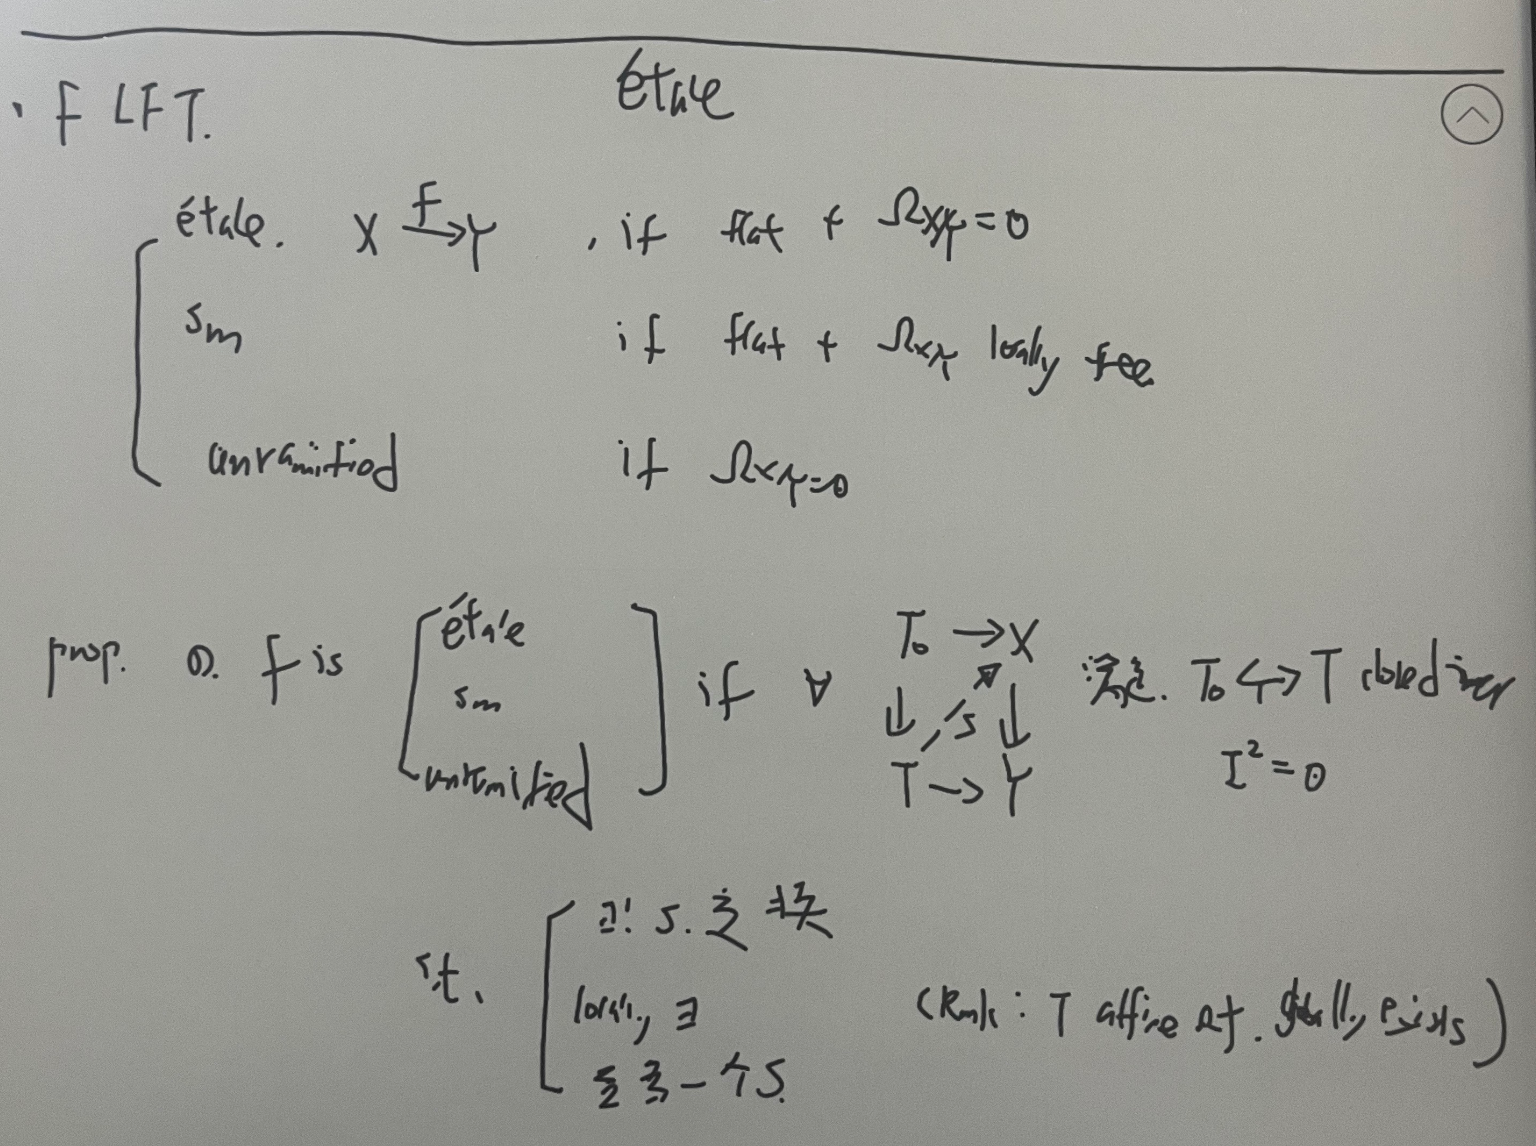 étale
· f LFT.
étale. X →f Y , if flat + Ω_{X/Y}=0
sm if flat + Ω_{X/Y} locally free
unramified if Ω_{X/Y}=0
prop. f is [ étale sm unramified ] if ∀ T₀ → X ↓ s ↓ T → Y 满足. T₀ ↪ T closed
I²=0
s.t. ∃! s. 交换
locally ∃
至多一个 s.
(Rmk: T affine at. globally exists)